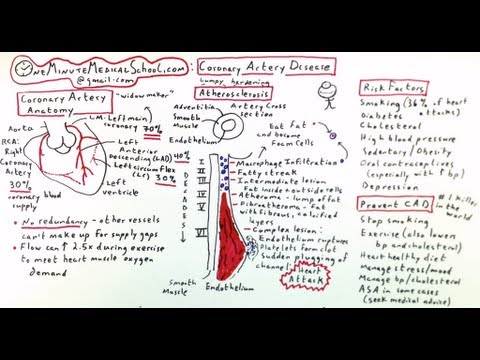 OneMinuteMedicalSchool.com: Coronary Artery Disease
@gmail.com
Coronary Artery
Anatomy
"widow maker"
LM-Left main
coronary 70%
Aorta
RCA:
Right
Coronary
Artery
30%
coronary blood
supply
Left
Anterior
Descending (LAD) 40%
Left circumflex
(LF) 30%
Left
ventricle
• No redundancy - other vessels
can't make up for supply gaps
• Flow can ↑ 2.5x during exercise
to meet heart muscle oxygen
demand
Lumpy hardening
Atherosclerosis
Adventitia
Smooth
Muscle
Endothelium
Artery Cross
section
Eat fat
and become
Foam Cells
DECADES
I Macrophage Infiltration
II Fatty streak
III Intermediate lesion
Fat inside + outside cells
IV Atheroma - lump of fat
V Fibroatheroma - fat
with fibrous, calcified
layers
VI Complex lesion:
Endothelium ruptures
Platelets form clot
sudden plugging of
channel
Heart
Attack
Smooth
Muscle
Endothelium
Risk Factors
Smoking (36% of heart
attacks)
Diabetes
Cholesterol
High blood pressure
Sedentary/Obesity
Oral contraceptives
(especially with ↑ bp)
Depression
#1 killer in
the world
Prevent CAD
Stop smoking
Exercise (also lowers
bp and cholesterol)
Heart healthy diet
Manage stress/mood
Manage bp/cholesterol
ASA in some cases
(seek medical advise)